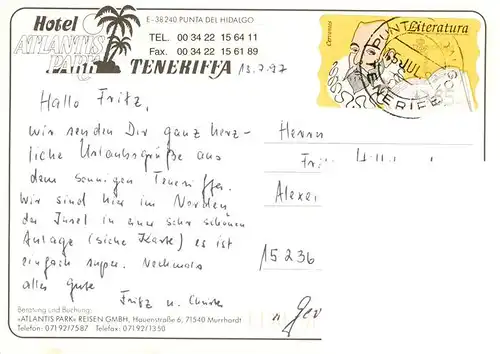 Hotel
ATLANTIS
PARK
E-38240 PUNTA DEL HIDALGO
TEL. 00 34 22 15 64 11
Fax. 00 34 22 15 61 89
TENERIFFA
13.7.97
Cervantes
Literatura
PUNTA
JUL
TENERIFE
Hallo Fritz,
wir senden Dir ganz herz-
liche Urlaubsgrüße aus
dem sonnigen Teneriffa.
Wir sind hier im Norden
der Insel in einer sehr schönen
Anlage (siehe Karte) es ist
einfach super. Nochmals
alles Gute
Fritz u.
Herrn
Alexa
15236
Beratung und Buchung:
«ATLANTIS PARK» REISEN GMBH, Hauenstraße 6, 71540 Murrhardt
Telefon: 07192/7587 Telefax: 07192/1350